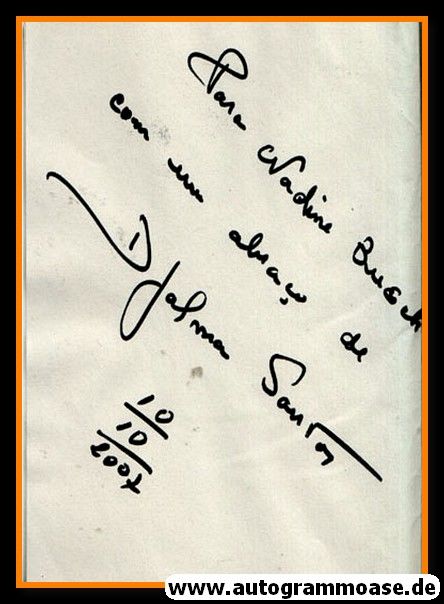 Para Nadine Busch
com um abraço de
Djalma Santos
10
10
2007
www.autogrammoase.de